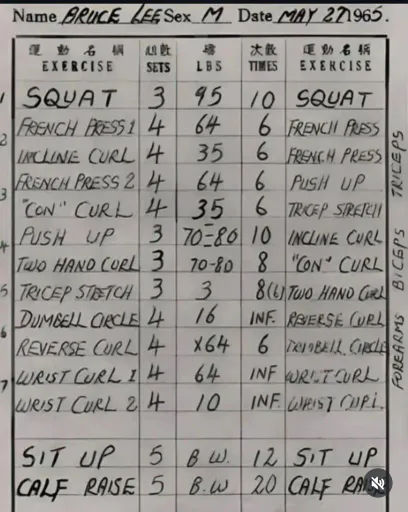 Name BRUCE LEE Sex M Date MAY 27 1965.
運動名稱 組數 磅 次數 運動名稱
EXERCISE SETS LBS TIMES EXERCISE
1 SQUAT 3 95 10 SQUAT
2 FRENCH PRESS 1 4 64 6 FRENCH PRESS
INCLINE CURL 4 35 6 FRENCH PRESS
3 FRENCH PRESS 2 4 64 6 PUSH UP
"CON" CURL 4 35 6 TRICEP STRETCH
4 PUSH UP 3 70-80 10 INCLINE CURL
TWO HAND CURL 3 70-80 8 "CON" CURL
5 TRICEP STRETCH 3 3 8(6) TWO HAND CURL
DUMBELL CIRCLE 4 16 INF. REVERSE CURL
6 REVERSE CURL 4 x64 6 DUMBELL CIRCLE
7 WRIST CURL 1 4 64 INF WRIST CURL
WRIST CURL 2 4 10 INF. WRIST CURL
SIT UP 5 B.W. 12 SIT UP
CALF RAISE 5 B.W 20 CALF
TRICEPS
BICEPS
FOREARMS